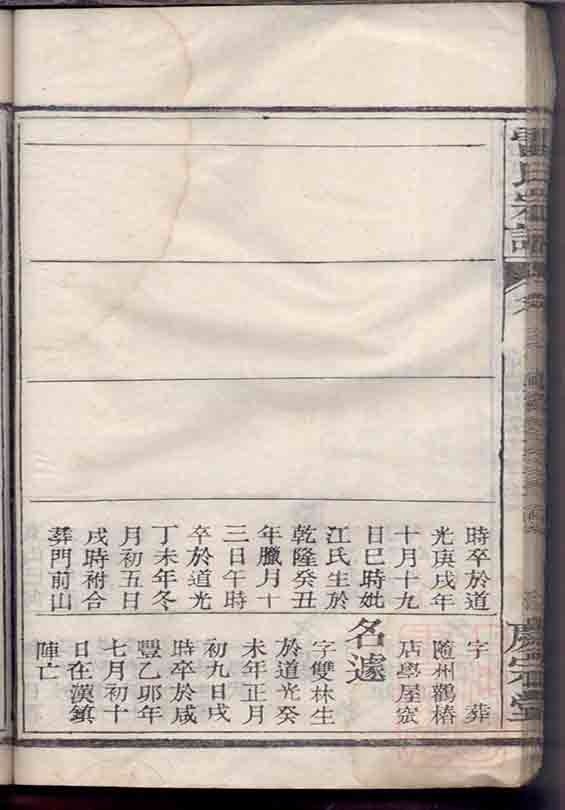 時卒於道
光庚戌年
十月十九
日巳時妣
江氏生於
乾隆癸丑
年臘月十
三日午時
卒於道光
丁未年冬
月初五日
戌時祔合
葬門前山
字 葬
隨州鸛椿
店學屋窊
名遽
字雙林生
於道光癸
未年正月
初九日戌
時卒於咸
豐乙卯年
七月初十
日在漢鎮
陣亡
氏宗譜
慶 堂